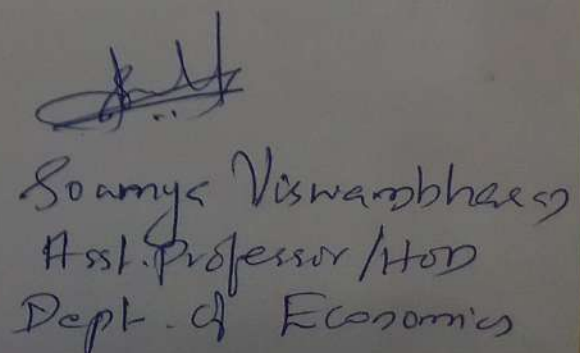 Soumya Viswambharan
Asst. Professor/HOD
Dept. of Economics